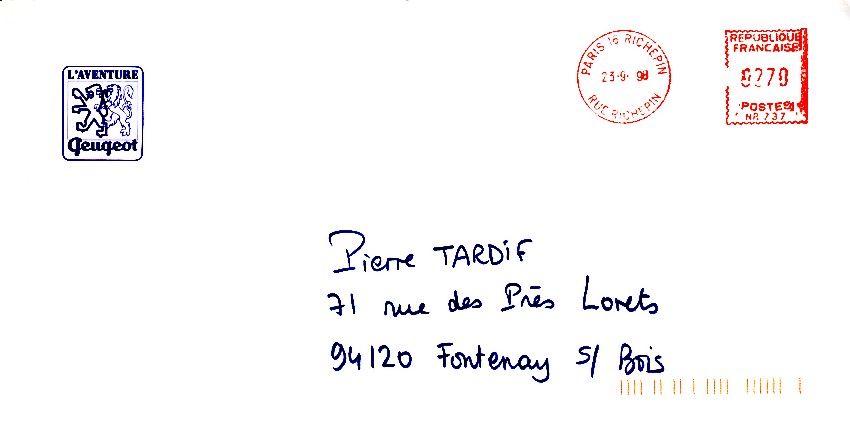 L'AVENTURE
Peugeot
PARIS 16 RICHEPIN
23-9-98
RUE RICHEPIN
REPUBLIQUE
FRANCAISE
0270
POSTES
NR 737
Pierre TARDIF
71 rue des Près Lorets
94120 Fontenay s/ Bois